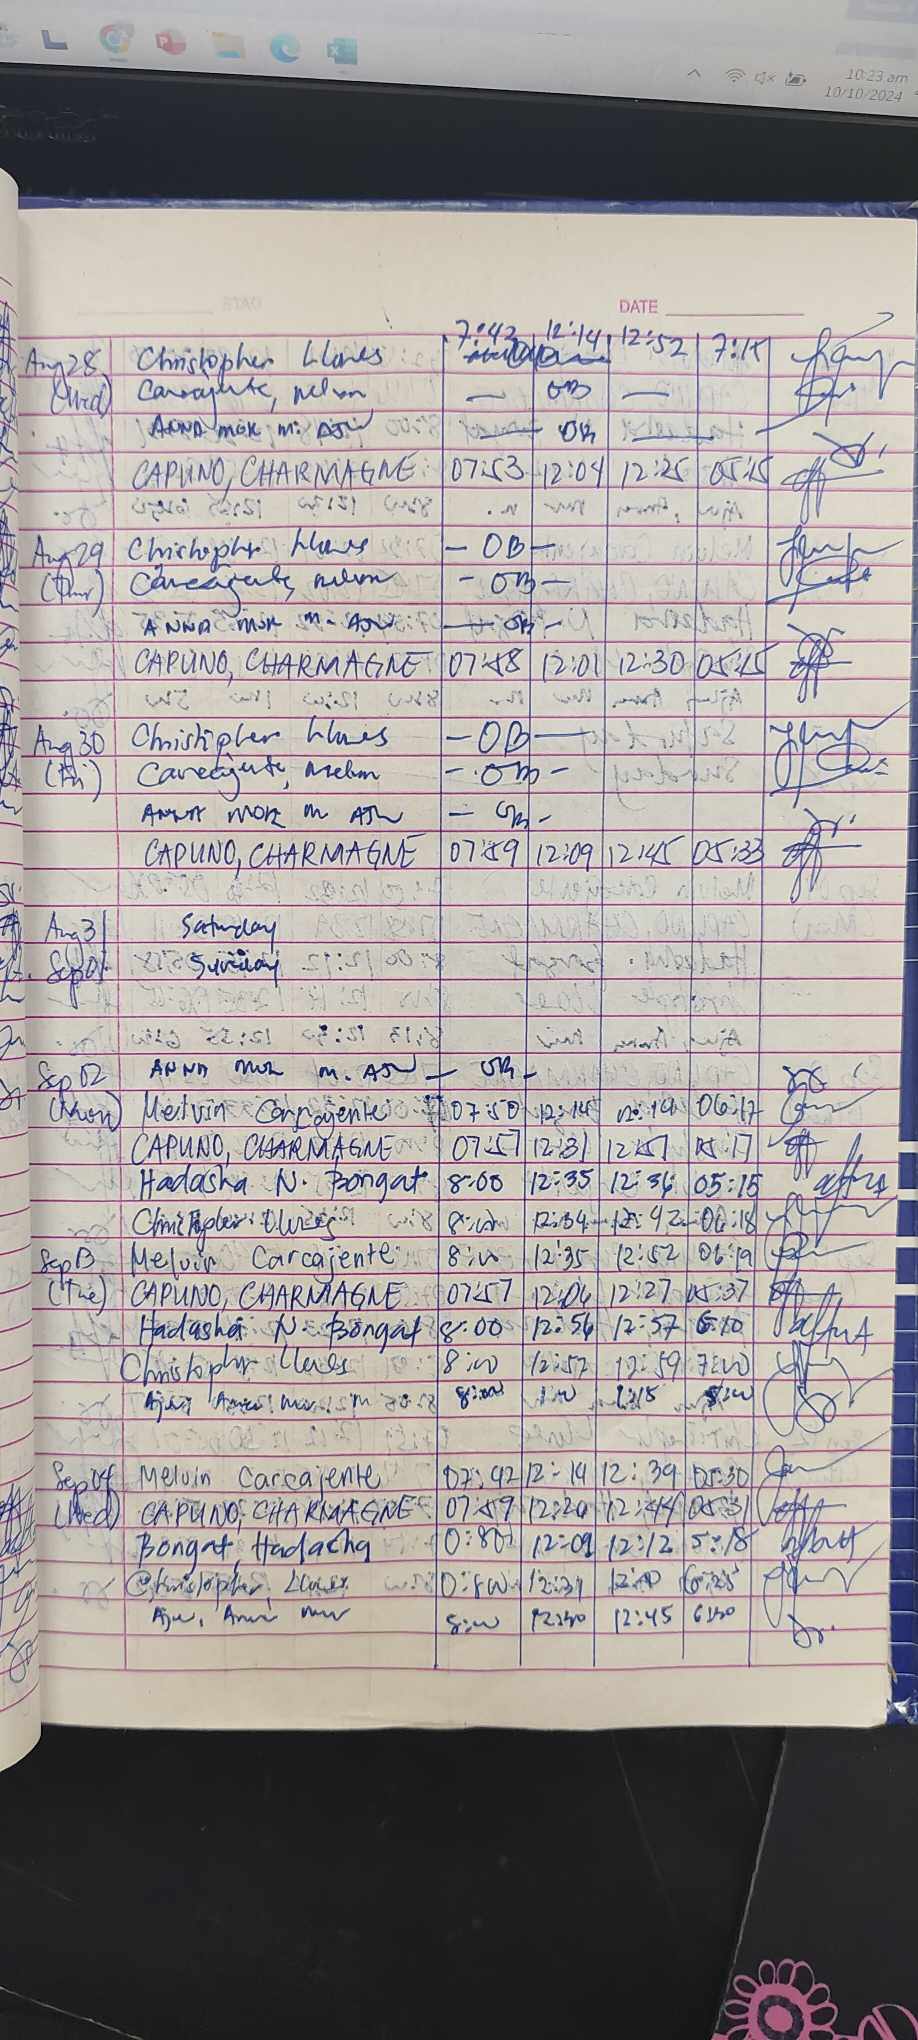 10:23 am
10/10/2024
DATE
7:42 12:14 12:52 7:15
Aug 28 Christopher Llunes
(Wed) Carcajente, Melvin — OB —
ANNA MOR M. AJW — OB —
CAPUNO, CHARMAGNE 07:53 12:04 12:25 05:15
Aug 29 Christopher Llunes — OB —
(Thur) Carcajente, Melvin — OB —
ANNA MOR M. AJW — OB —
CAPUNO, CHARMAGNE 07:58 12:01 12:30 05:15
Aug 30 Christopher Llunes — OB —
(Fri) Carcajente, Melvin — OB —
ANNA MOR M AJW — OB —
CAPUNO, CHARMAGNE 07:59 12:09 12:45 05:33
Aug 31 Saturday
Sep 01 Sunday
Sep 02 ANNA MOR M. AJW — OB —
(Mon) Melvin Carcajente 07:50 12:14 12:19 06:17
CAPUNO, CHARMAGNE 07:57 12:31 12:51 05:17
Hadasha N. Bongat 8:00 12:35 12:36 05:15
Christopher Llunes 8:00 12:34 12:42 06:18
Sep 03 Melvin Carcajente 8:00 12:35 12:52 06:19
(Tue) CAPUNO, CHARMAGNE 07:57 12:06 12:27 05:37
Hadasha N. Bongat 8:00 12:56 12:57 5:10
Christopher Llunes 8:00 12:57 12:59 7:00
8:00 1:00 1:15
Sep 04 Melvin Carcajente 07:42 12:14 12:39 05:30
(Wed) CAPUNO, CHARMAGNE 07:59 12:20 12:44 05:31
Bongat, Hadasha 0:800 12:09 12:12 5:18
Christopher, Llunes 0:800 12:39 6:25
8:00 12:30 12:45 6:30